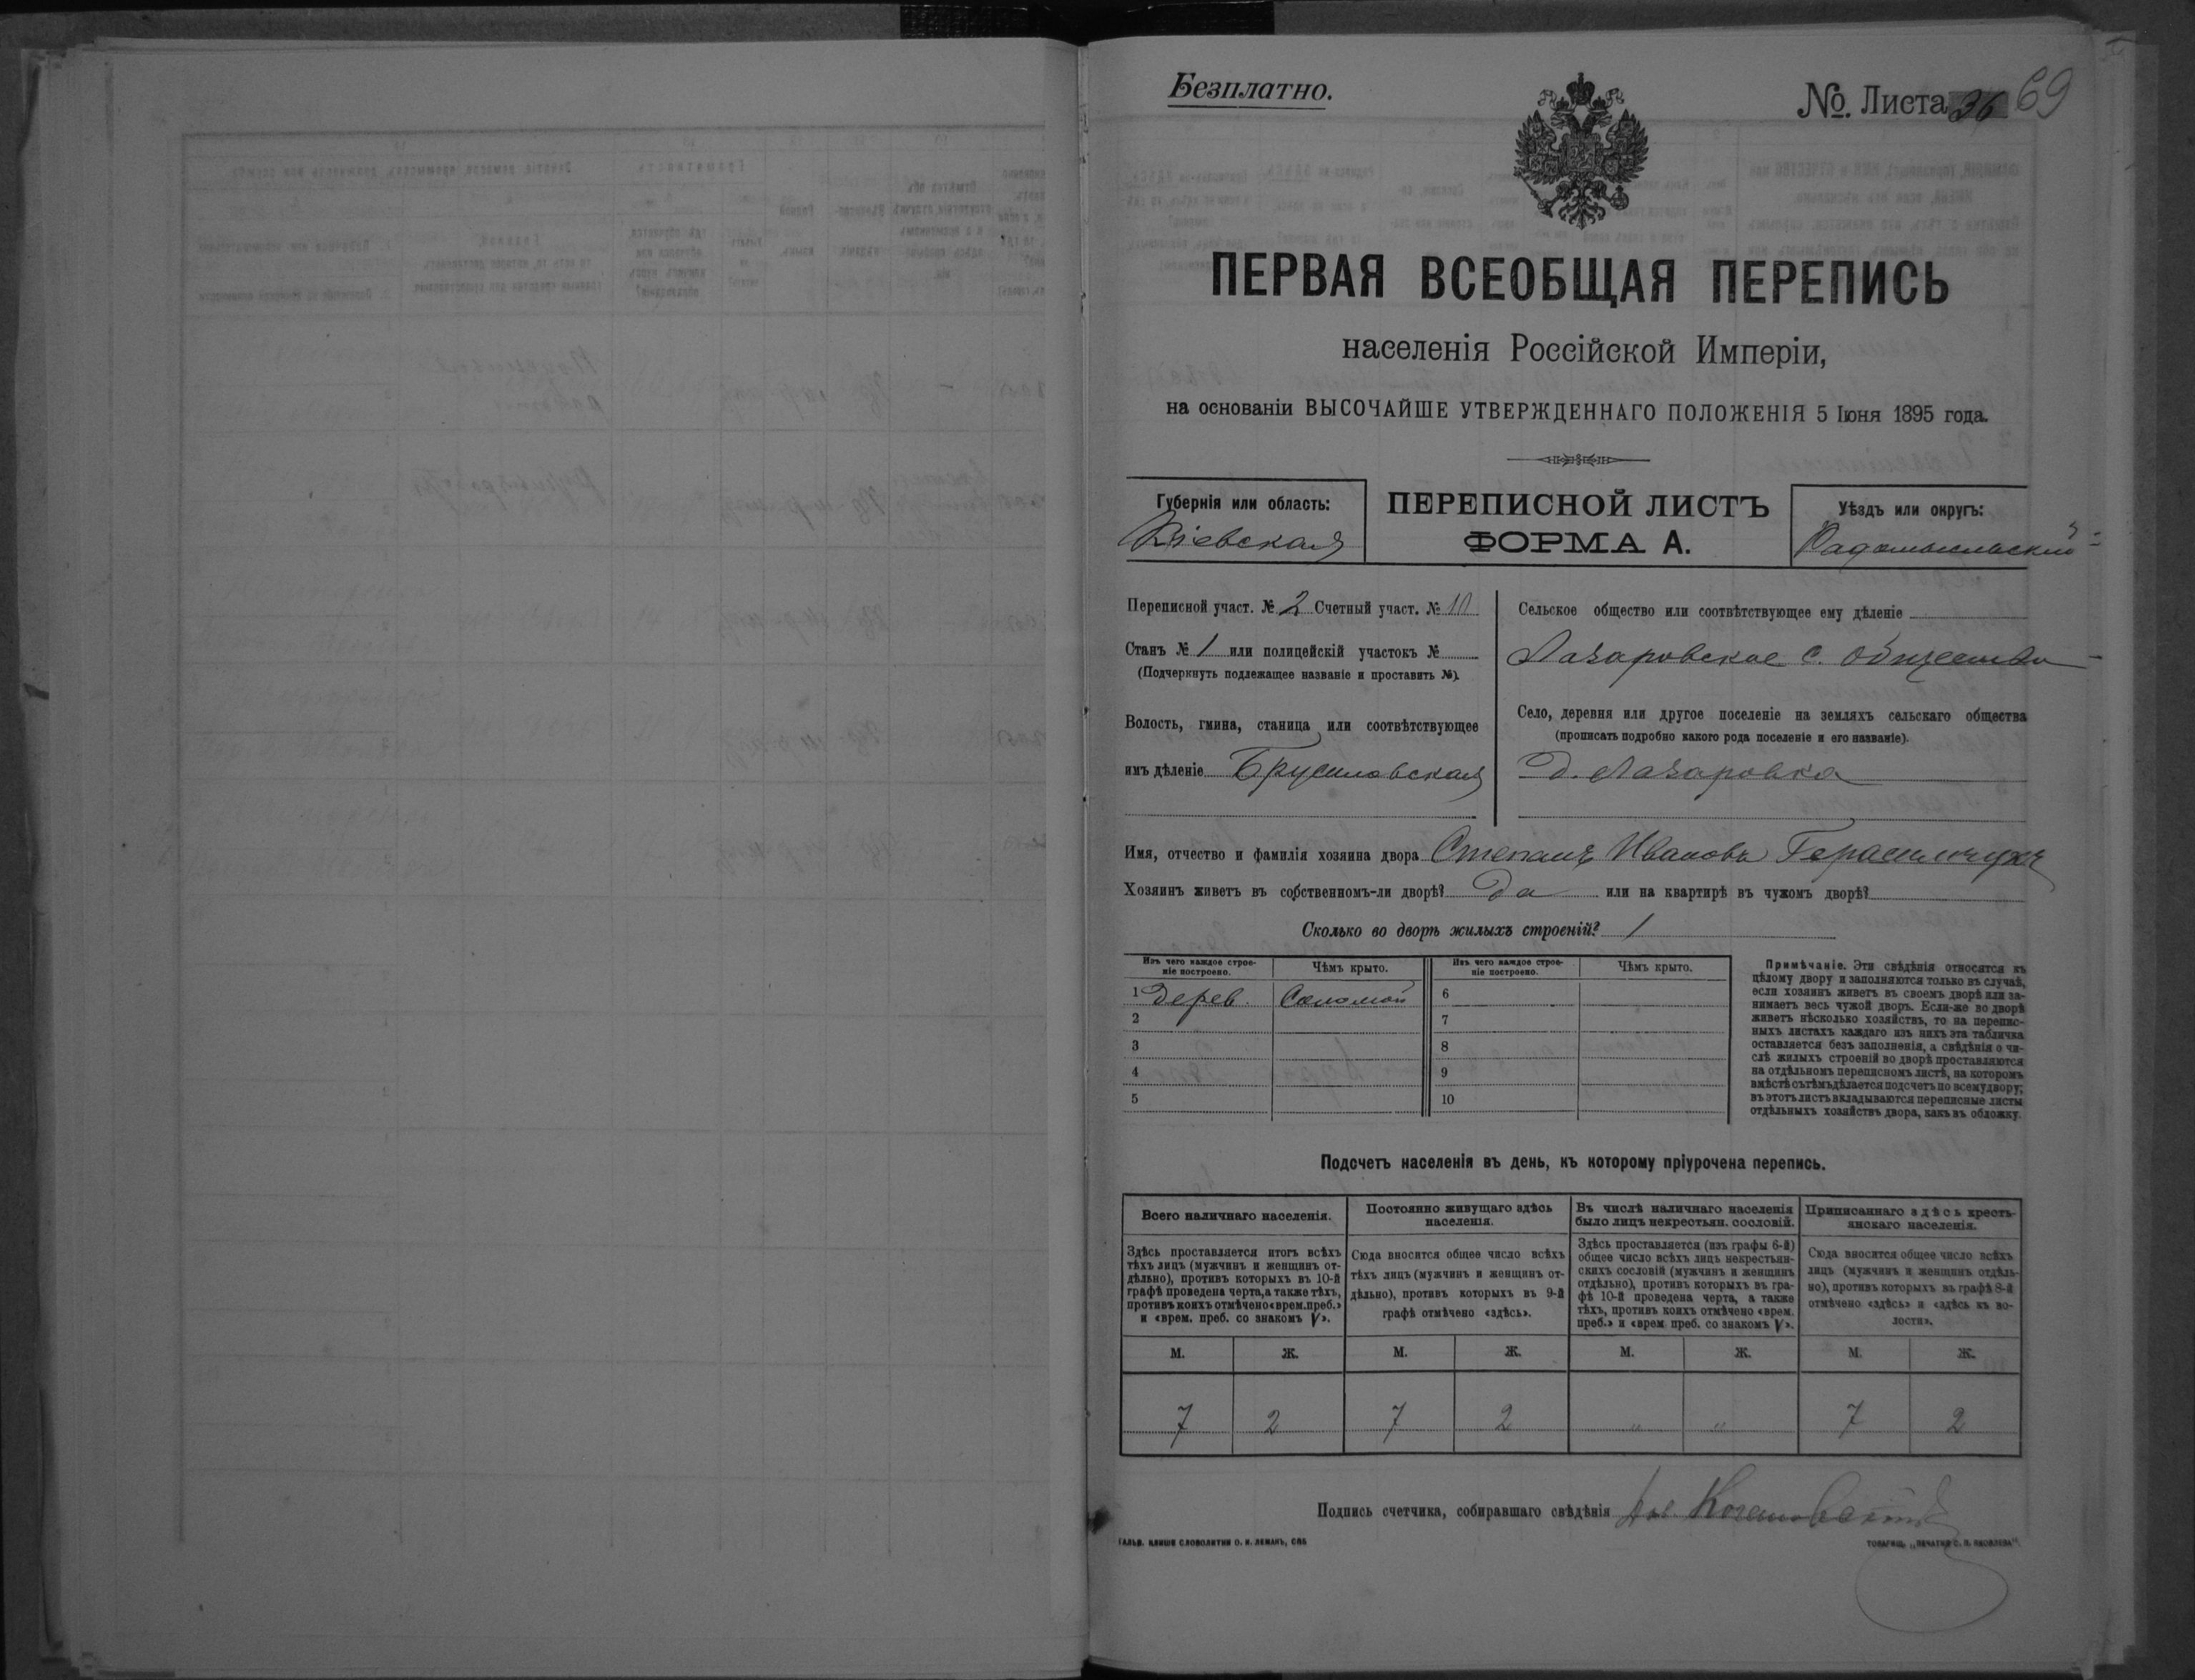 Безплатно.
№. Листа 36 69
ПЕРВАЯ ВСЕОБЩАЯ ПЕРЕПИСЬ
населенія Россійской Имперіи,
на основаніи ВЫСОЧАЙШЕ УТВЕРЖДЕННАГО ПОЛОЖЕНІЯ 5 Іюня 1895 года.
Губернія или область:
Кіевская
ПЕРЕПИСНОЙ ЛИСТЪ
ФОРМА А.
Уѣздъ или округъ:
Радомысльскій
Переписной участ. № 2 Счетный участ. № 10
Станъ № 1 или полицейскій участокъ №
(Подчеркнуть подлежащее названіе и проставить №).
Волость, гмина, станица или соотвѣтствующее
имъ дѣленіе Брусиловская
Сельское общество или соотвѣтствующее ему дѣленіе
Лазаровское с. общество
Село, деревня или другое поселеніе на земляхъ сельскаго общества
(прописать подробно какого рода поселеніе и его названіе).
Д. Лазаровка
Имя, отчество и фамилія хозяина двора Степанъ Ивановъ Герасимчукъ
Хозяинъ живетъ въ собственномъ-ли дворѣ? Да или на квартирѣ въ чужомъ дворѣ?
Сколько во дворѣ жилыхъ строеній? 1
Изъ чего каждое строе-
ніе построено.
Чѣмъ крыто.
Изъ чего каждое строе-
ніе построено.
Чѣмъ крыто.
1 Дерев. Соломой 6
2 7
3 8
4 9
5 10
Примѣчаніе. Эти свѣдѣнія относятся къ
цѣлому двору и заполняются только въ случаѣ,
если хозяинъ живетъ въ своемъ дворѣ или за-
нимаетъ весь чужой дворъ. Если-же во дворѣ
живетъ нѣсколько хозяйствъ, то на перепис-
ныхъ листахъ каждаго изъ нихъ эта табличка
оставляется безъ заполненія, а свѣдѣнія о чи-
слѣ жилыхъ строеній во дворѣ проставляются
на отдѣльномъ переписномъ листѣ, на которомъ
вмѣстѣ съ тѣмъ дѣлается подсчетъ по всему двору;
въ этотъ листъ вкладываются переписные листы
отдѣльныхъ хозяйствъ двора, какъ въ обложку.
Подсчетъ населенія въ день, къ которому пріурочена перепись.
Всего наличнаго населенія.
Здѣсь проставляется итогъ всѣхъ
тѣхъ лицъ (мужчинъ и женщинъ от-
дѣльно), противъ которыхъ въ 10-й
графѣ проведена черта, а также тѣхъ,
противъ коихъ отмѣчено «врем. преб.»
и «врем. преб. со знакомъ V».
Постоянно живущаго здѣсь
населенія.
Сюда вносится общее число всѣхъ
тѣхъ лицъ (мужчинъ и женщинъ от-
дѣльно), противъ которыхъ въ 9-й
графѣ отмѣчено «здѣсь».
Въ числѣ наличнаго населенія
было лицъ некрестьян. сословій.
Здѣсь проставляется (изъ графы 6-й)
общее число всѣхъ лицъ некрестьян-
скихъ сословій (мужчинъ и женщинъ
отдѣльно), противъ которыхъ въ гра-
фѣ 10-й проведена черта, а также
тѣхъ, противъ коихъ отмѣчено «врем.
преб.» и «врем. преб. со знакомъ V».
Приписаннаго здѣсь кресть-
янскаго населенія.
Сюда вносится общее число всѣхъ
лицъ (мужчинъ и женщинъ отдѣль-
но), противъ которыхъ въ графѣ 8-й
отмѣчено «здѣсь» и «здѣсь къ во-
лости».
М. Ж. М. Ж. М. Ж. М. Ж.
7 2 7 2 " " 7 2
Подпись счетчика, собиравшаго свѣдѣнія
ГАЛЬВ. КЛИШЕ СЛОВОЛИТНИ О. И. ЛЕМАНЪ, СПБ
ТОВАРИЩ. „ПЕЧАТНЯ С. П. ЯКОВЛЕВА".